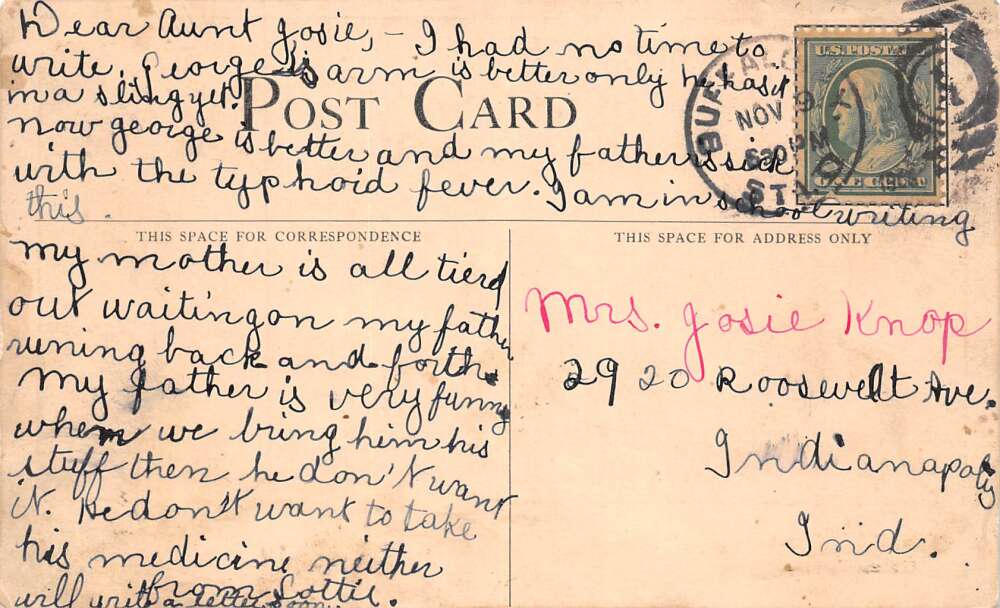 Dear Aunt Josie, - I had no time to
write. George is arm is better only he has it
in a sling yet.
POST CARD
now george is better and my father is sick
with the typhoid fever. I am in school writing
this.
U.S. POSTAGE
ONE CENT
BUFFALO
NOV 9
630 PM
STA.
THIS SPACE FOR CORRESPONDENCE
my mother is all tierd
out waiting on my father
runing back and forth.
My father is very funny
when we bring him his
stuff then he don't want
it. He don't want to take
his medicine neither
from Lottie.
will write a letter soon.
THIS SPACE FOR ADDRESS ONLY
Mrs. Josie Knop
2920 Roosevelt Ave.
Indianapolis
Ind.